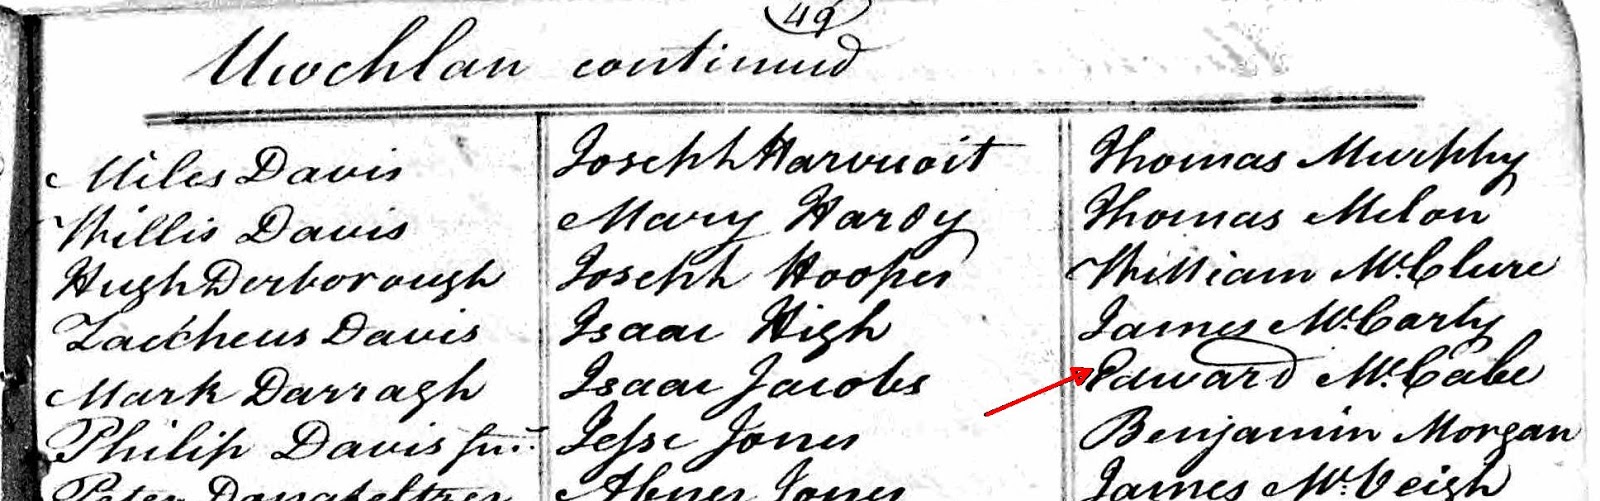 49
Uwchlan continued
Miles Davis
Willis Davis
Hugh Derborough
Zaccheus Davis
Mark Darragh
Philip Davis Junr.
Peter
Joseph Harvuoit
Mary Hardy
Joseph Hooper
Isaac High
Isaac Jacobs
Jesse Jones
Abner Jones
Thomas Murphy
Thomas Melon
William McClure
James McCarty
Edward McCabe
Benjamin Morgan
James McVeigh